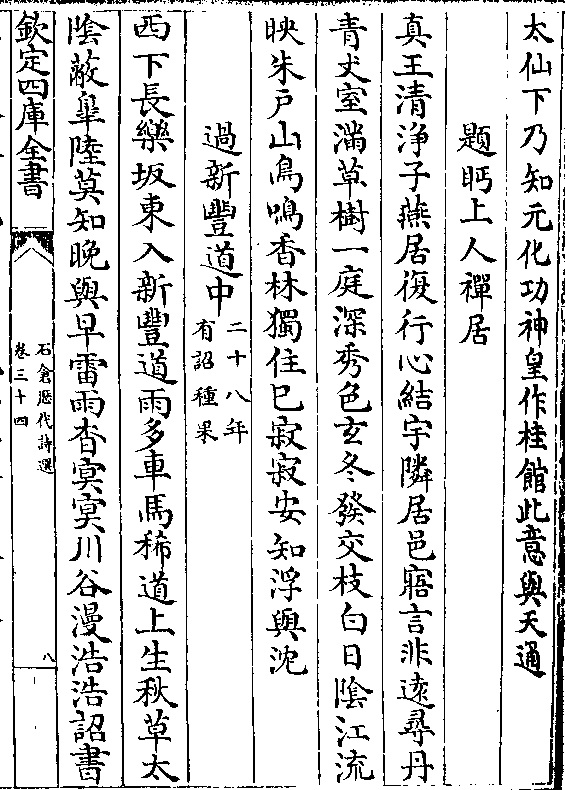 太仙下乃知元化功神皇作桂館此意與天通
題眄上人禪居
真王清淨子燕居復行心結宇隣居邑寤言非遠尋丹
青丈室滿草樹一庭深秀色玄冬發交枝白日陰江流
映朱戸山鳥鳴香林獨住已寂寂安知浮與沈
過新豐道中
二十八年
有詔種果
西下長樂坂東入新豐道雨多車馬稀道上生秋草太
陰蔽臯陸莫知晚與早雷雨杳冥冥川谷漫浩浩詔書
欽定四庫全書
石倉歴代詩選
卷三十四
八